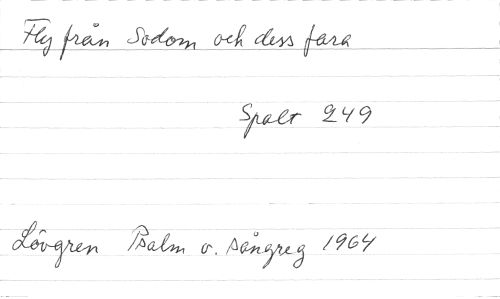 Fly från Sodom och dess fara
Spalt 249
Lövgren Psalm o. sångreg 1964